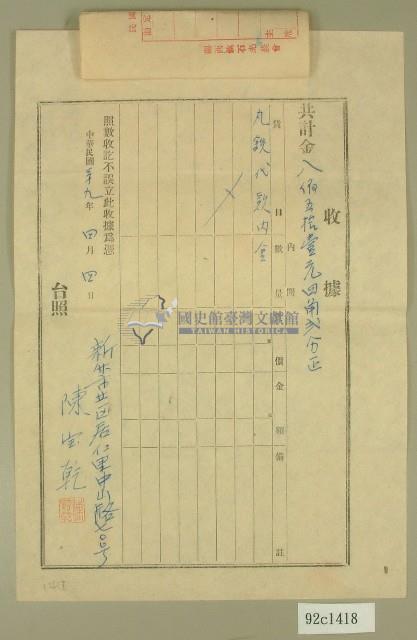 收據
共計金八佰五拾壹元四角弍分正
內開
貨目 數量 價金額 備註
丸鉄代款內金
照數收訖不誤立此收據為憑
中華民國卅九年四月四日
台照
新竹市北區居仁里中山路七〇号
陳宝乾
國史館臺灣文獻館
TAIWAN HISTORICA
92c1418